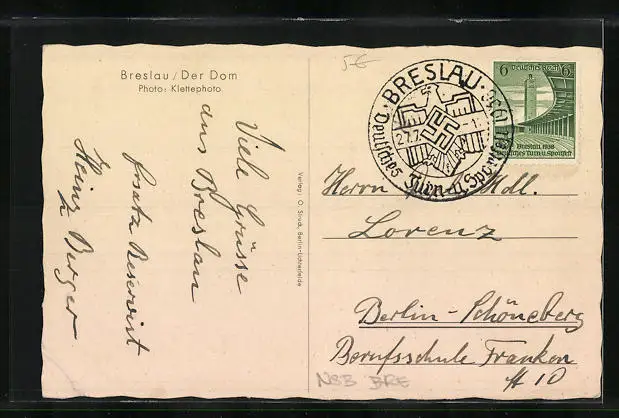 Breslau / Der Dom
Photo: Klettephoto
Viele Grüsse
aus Breslau
Ersatz Reservist
Heinz Berger
Verlag: O. Struck, Berlin-Lichterfelde
5-€
BRESLAU
Deutsches Turn- u. Sportfest 1938
27.7.
6 Deutsches Reich 6
Breslau 1938
Deutsches Turn u. Sportfest
Herrn
Lorenz
Berlin-Schöneberg
Berufsschule Franken
10
NSB BRE